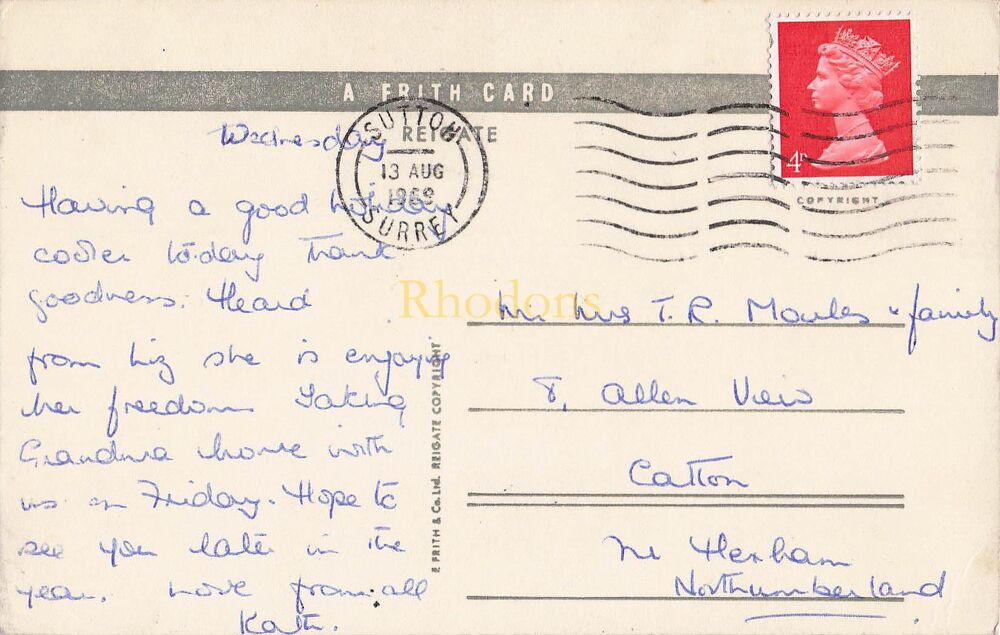 A FRITH CARD
REIGATE
SUTTON
13 AUG
SURREY
4D
COPYRIGHT
Wednesday
Having a good holiday
cooler to-day Thank
goodness. Heard
from Liz she is enjoying
her freedom Taking
Grandma home with
us on Friday. Hope to
see you later in the
year. Love from all
Kath.
Rhodons
Mr Mrs T. R. Moules & family
8, Allen View
Catton
Nr Hexham
Northumberland
© FRITH & Co. Ltd. REIGATE COPYRIGHT